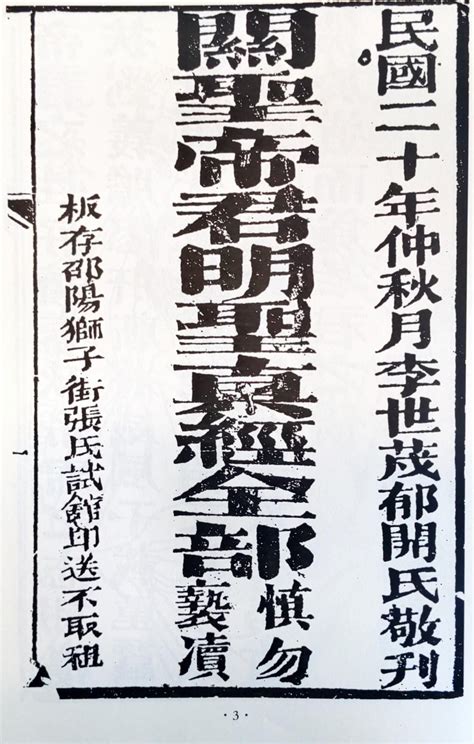 民國二十年仲秋月李世茂郁開氏敬刊
關聖帝君明聖真經全部
慎勿
褻瀆
板存邵陽獅子街張氏試館印送不取租
· 3 ·